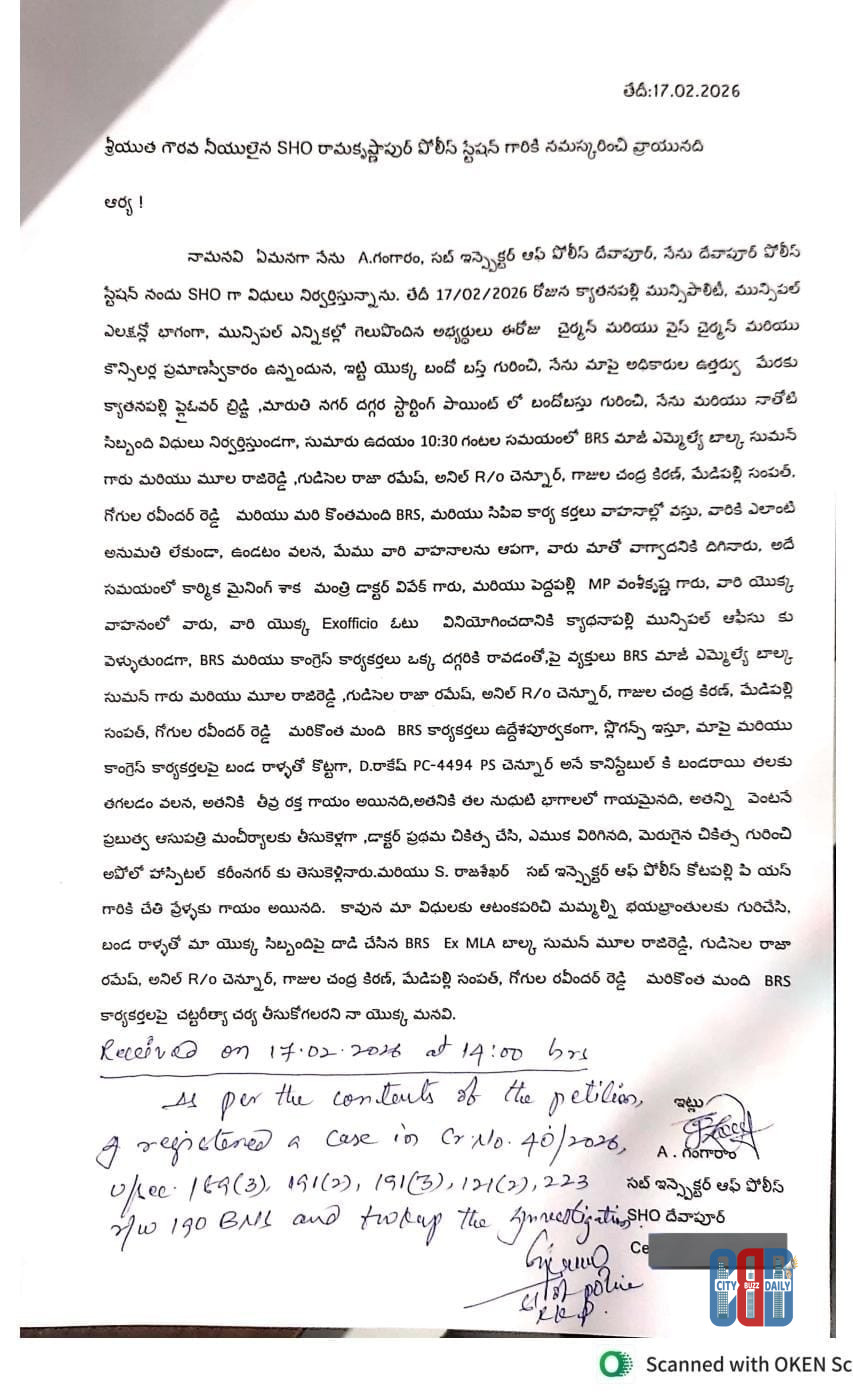 తేదీ:17.02.2026
శ్రీయుత గౌరవ నీయులైన SHO రామకృష్ణాపుర్ పోలీస్ స్టేషన్ గారికి నమస్కరించి వ్రాయునది
ఆర్య !
నామనవి ఏమనగా నేను A.గంగారం, సబ్ ఇన్స్పెక్టర్ ఆఫ్ పోలీస్ దేవాపూర్, సేను దేవాపూర్ పోలీస్
స్టేషన్ నందు SHO గా విధులు నిర్వర్తిస్తున్నాను. తేదీ 17/02/2026 రోజున క్యాతనపల్లి మున్సిపాలిటీ, మున్సిపల్
ఎలక్షన్లో భాగంగా, మున్సిపల్ ఎన్నికల్లో గెలుపొందిన అభ్యర్థులు ఈరోజు చైర్మన్ మరియు వైస్ చైర్మన్ మరియు
కౌన్సిలర్ల ప్రమాణస్వీకారం ఉన్నందున, ఇట్టి యొక్క బందో బస్త్ గురించి, నేను మాపై అధికారుల ఉత్తర్వు మేరకు
క్యాతనపల్లి ఫ్లైఓవర్ బ్రిడ్జి ,మారుతి నగర్ దగ్గర స్టార్టింగ్ పాయింట్ లో బందోబస్తు గురించి, నేను మరియు నాతోటి
సిబ్బంది విధులు నిర్వర్తిస్తుండగా, సుమారు ఉదయం 10:30 గంటల సమయంలో BRS మాజీ ఎమ్మెల్యే బాల్క సుమన్
గారు మరియు మూల రాజిరెడ్డి ,గుడిసెల రాజా రమేష్, అనిల్ R/o చెన్నూర్, గాజుల చంద్ర కిరణ్, మేడిపల్లి సంపత్,
గోగుల రవీందర్ రెడ్డి మరియు మరి కొంతమంది BRS, మరియు సిపిఐ కార్య కర్తలు వాహనాల్లో వస్తు, వారికి ఎలాంటి
అనుమతి లేకుండా, ఉండటం వలన, మేము వారి వాహనాలను ఆపగా, వారు మాతో వాగ్వాదనికి దిగినారు, అదే
సమయంలో కార్మిక మైనింగ్ శాక మంత్రి డాక్టర్ వివేక్ గారు, మరియు పెద్దపల్లి MP వంశీకృష్ణ గారు, వారి యొక్క
వాహనంలో వారు, వారి యొక్క Exofficio ఓటు వినియోగించదానికి క్యాథనాపల్లి మున్సిపల్ ఆఫీసు కు
వెళ్ళుతుండగా, BRS మరియు కాంగ్రెస్ కార్యకర్తలు ఒక్క దగ్గరికి రావడంతో,పై వ్యక్తులు BRS మాజీ ఎమ్మెల్యే బాల్క
సుమాన్ గారు మరియు మూల రాజిరెడ్డి ,గుడిసెల రాజా రమేష్, అనిల్ R/o చెన్నూర్, గాజుల చంద్ర కిరణ్, మేడిపల్లి
సంపత్, గోగుల రవీందర్ రెడ్డి మరికొంత మంది BRS కార్యకర్తలు ఉద్దేశపూర్వకంగా, స్లొగన్స్ ఇస్తూ, మాపై మరియు
కాంగ్రెస్ కార్యకర్తలపై బండ రాళ్ళతో కొట్టగా, D.రాకేష్ PC-4494 PS చెన్నూర్ అనే కానిస్టేబుల్ కి బండరాయి తలకు
తగలడం వలన, అతనికి తీవ్ర రక్త గాయం అయినది,అతనికి తల నుధుటి భాగాలలో గాయమైనది, అతన్ని వెంటనే
ప్రబుత్వ ఆసుపత్రి మంచీర్యాలకు తీసుకెళ్లగా ,డాక్టర్ ప్రథమ చికిత్స చేసి, ఎముక విరిగినది, మెరుగైన చికిత్స గురించి
అపోలో హాస్పిటల్ కరీంనగర్ కు తెసుకెళ్లినారు.మరియు S. రాజశేఖర్ సబ్ ఇన్స్పెక్టర్ ఆఫ్ పోలీస్ కోటపల్లి పి యస్
గారికి చేతి వ్రేళ్ళకు గాయం అయినది. కావున మా విధులకు ఆటంకపరిచి మమ్మల్ని భయబ్రాంతులకు గురిచేసి,
బండ రాళ్ళతో మా యొక్క సిబ్బందిపై దాడి చేసిన BRS Ex MLA బాల్క సుమన్ మూల రాజిరెడ్డి, గుడిసెల రాజా
రమేష్, అనిల్ R/o చెన్నూర్, గాజుల చంద్ర కిరణ్, మేడిపల్లి సంపత్, గోగుల రవీందర్ రెడ్డి మరికొంత మంది BRS
కార్యకర్తలపై చట్టరీత్యా చర్య తీసుకోగలరని నా యొక్క మనవి.
Received on 17.02.2026 at 14:00 hrs
As per the contents of the petition,
I registered a case in Cr.No. 40/2026,
U/sec. 189(3), 191(2), 191(3), 121(2), 223
r/w 190 BNS and took up the Investigation
ఇట్లు
A . గంగారాం
సబ్ ఇన్స్పెక్టర్ ఆఫ్ పోలీస్
SHO దేవాపూర్
Ce
of police
RKP.
CITY BUZZ DAILY
Scanned with OKEN Sc